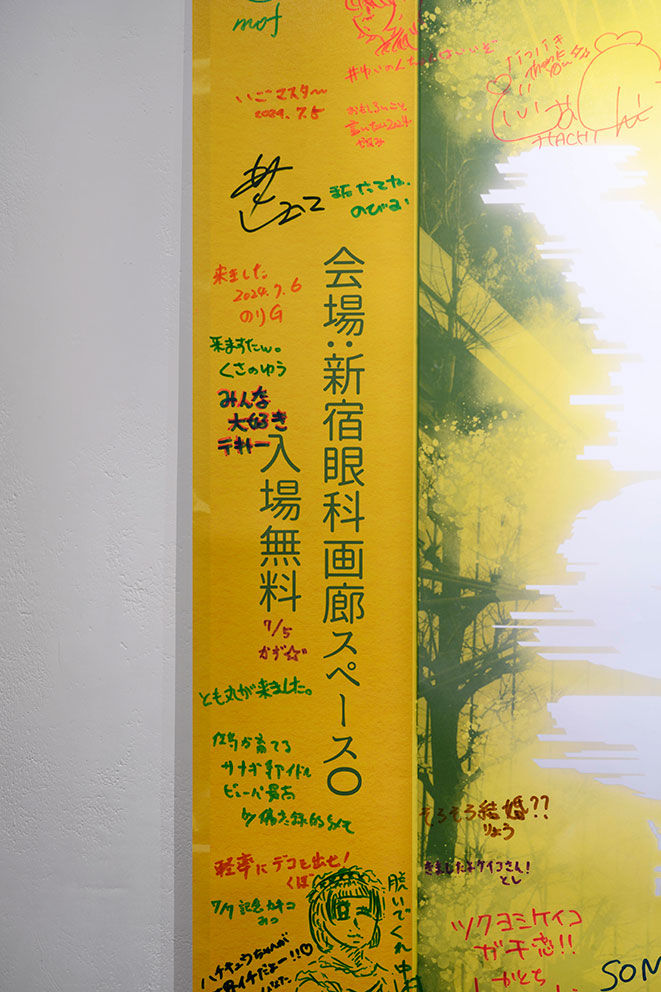 mof
いごマスター
2024.7.5
おもしろいこと
言いたい2024
まだだってね、
のびるい
Thank
you
HACHI
来ました
2024.7.6
のりG
来ますたw。
くさのゆう
みんな
大好き
テキトー
会場:新宿眼科画廊スペースO
入場無料
7/5
かず☆
とも丸が来ました。
が育てる
サナギ系アイドル
ピューパ最高
そろそろ結婚??
りょう
軽率にデコを出せ!
くぼ
きましたよケイコさん!
とし
7/7 記念カキコ
みつ
脱いでくれ 中村
ハチュウちゃんが
イチだよー!!♡
ツクヨミケイコ
ガチ恋!!
しかとち
SON